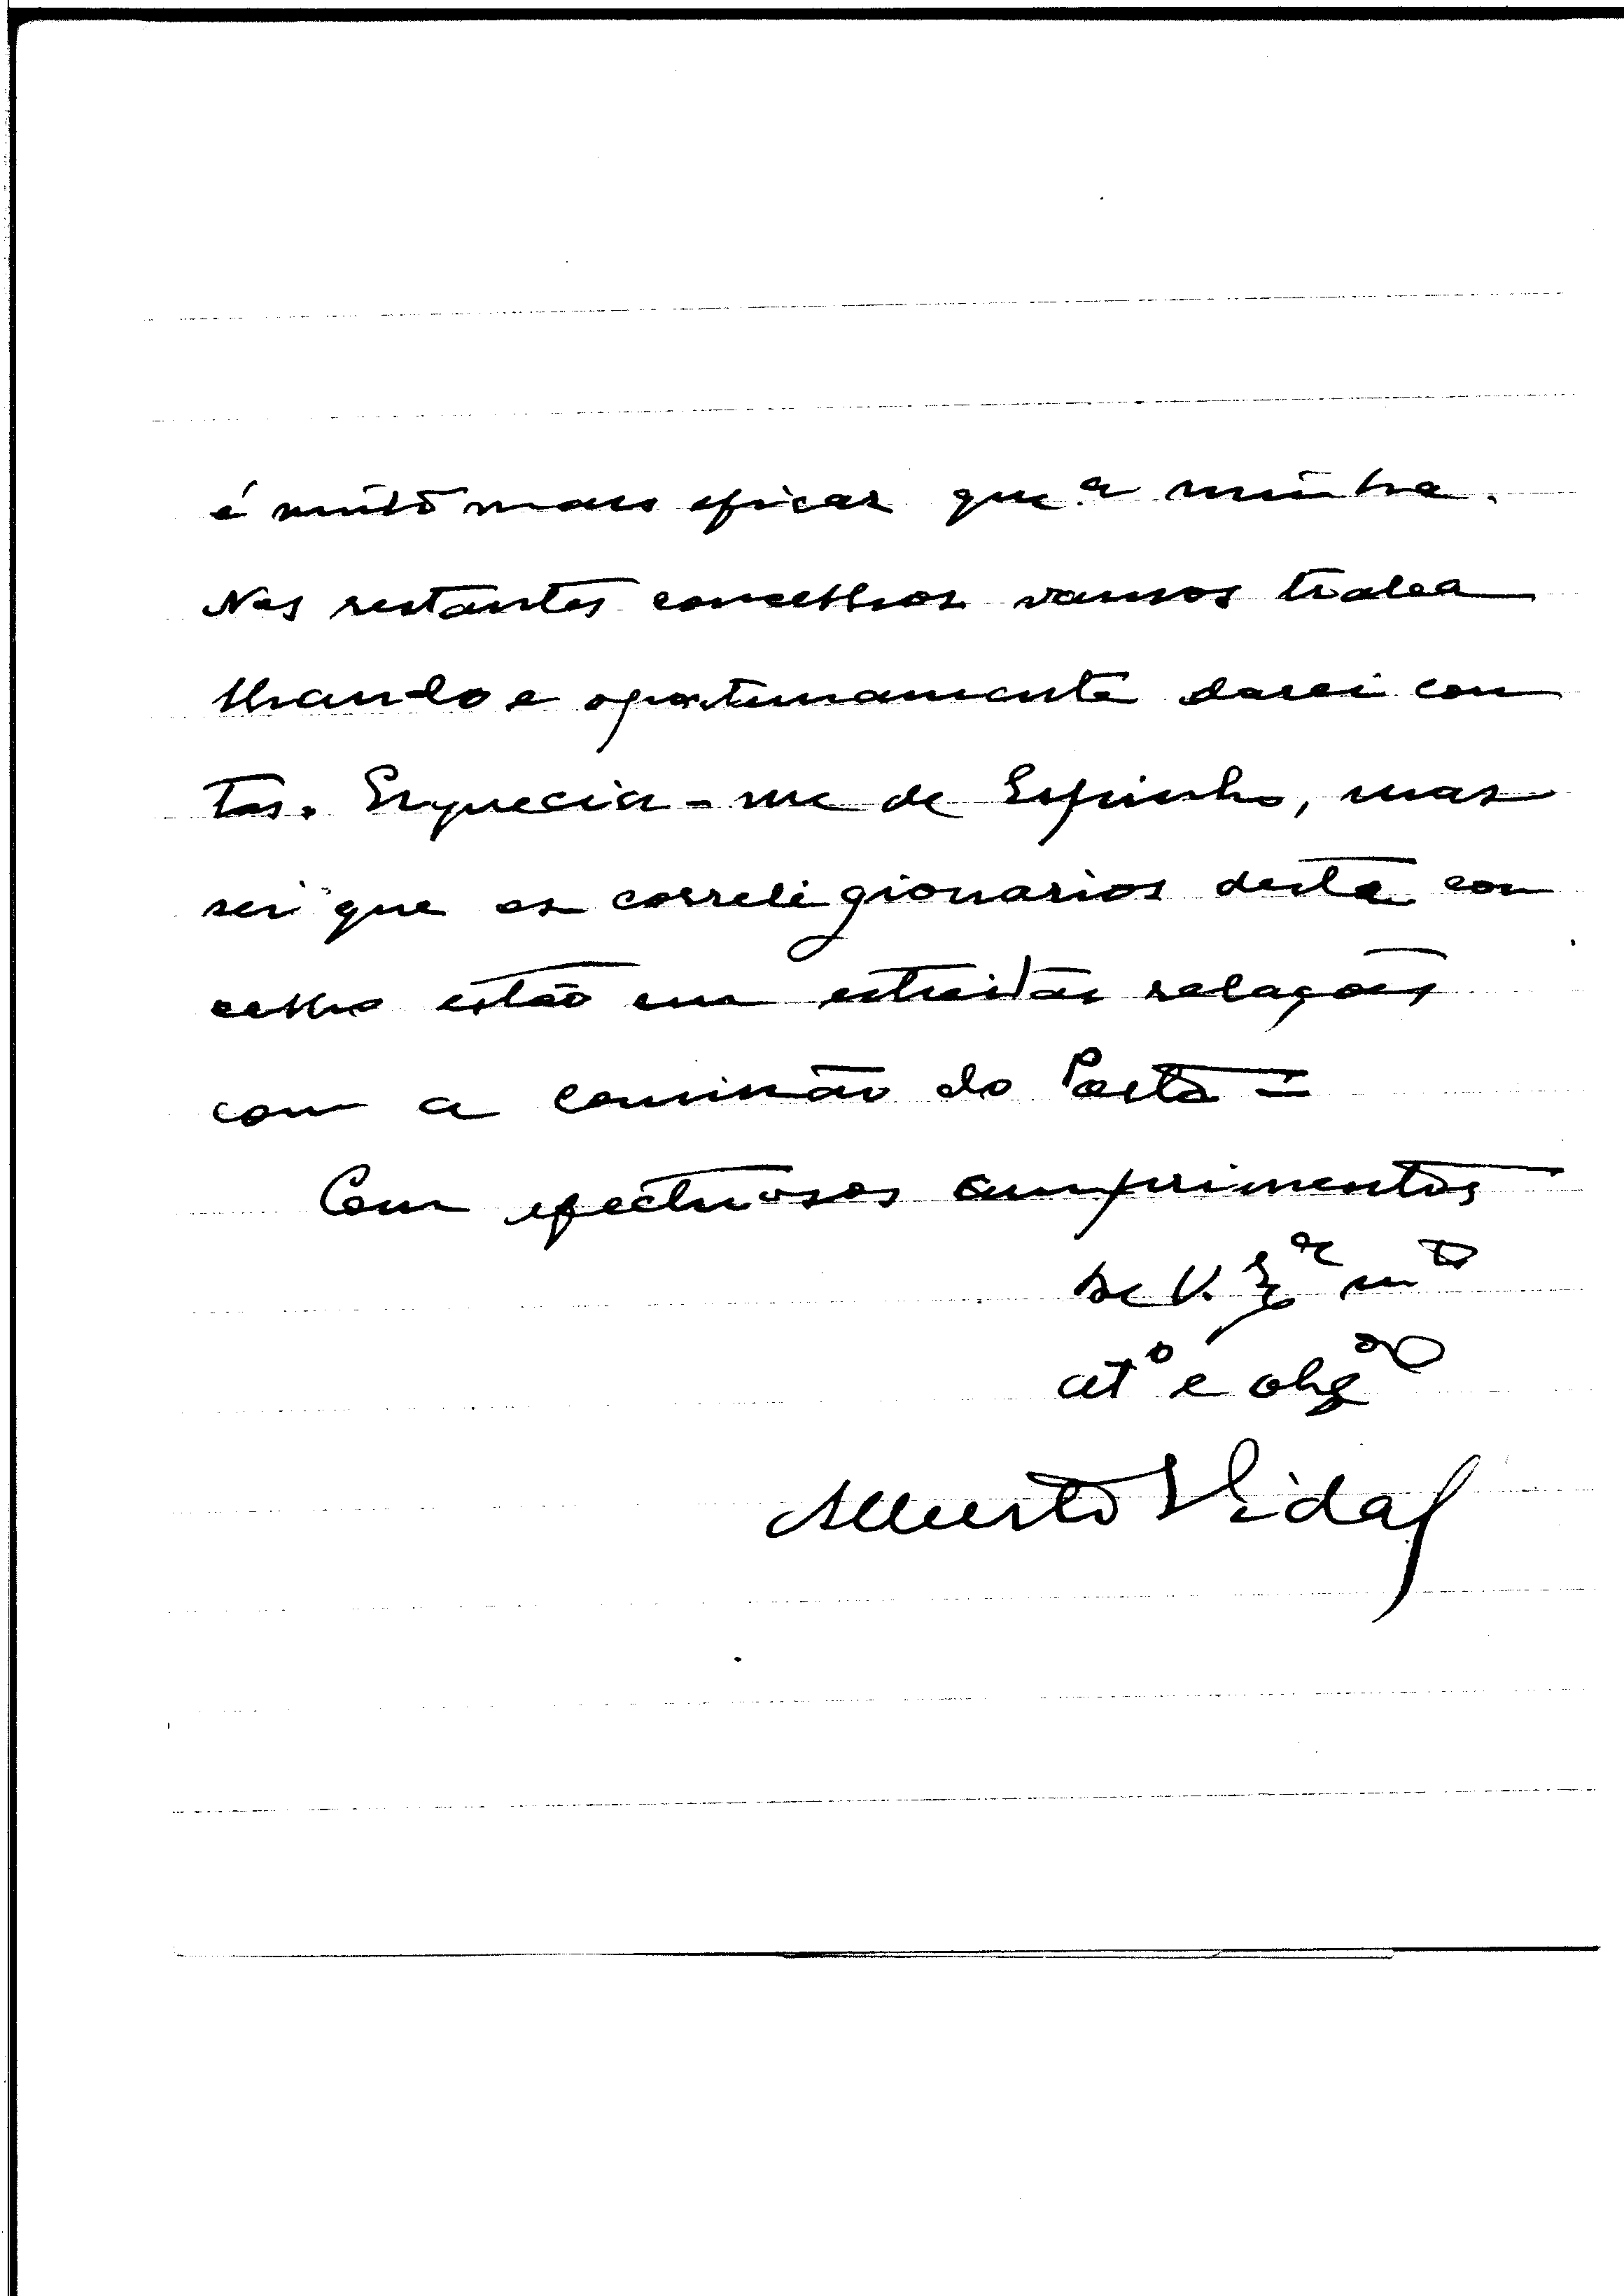 é muito mais eficaz que a minha.
Nos restantes concelhos vamos traba
lhando e oportunamente darei con
tas. Esquecia-me de Espinho, mas
sei que os correligionarios deste con
celho estão em estreitas relações
com a comissão do Porto =
Com afectuosos cumprimentos
de V. Ex.ª m.to
at.º e obg.do
Alberto Vidal